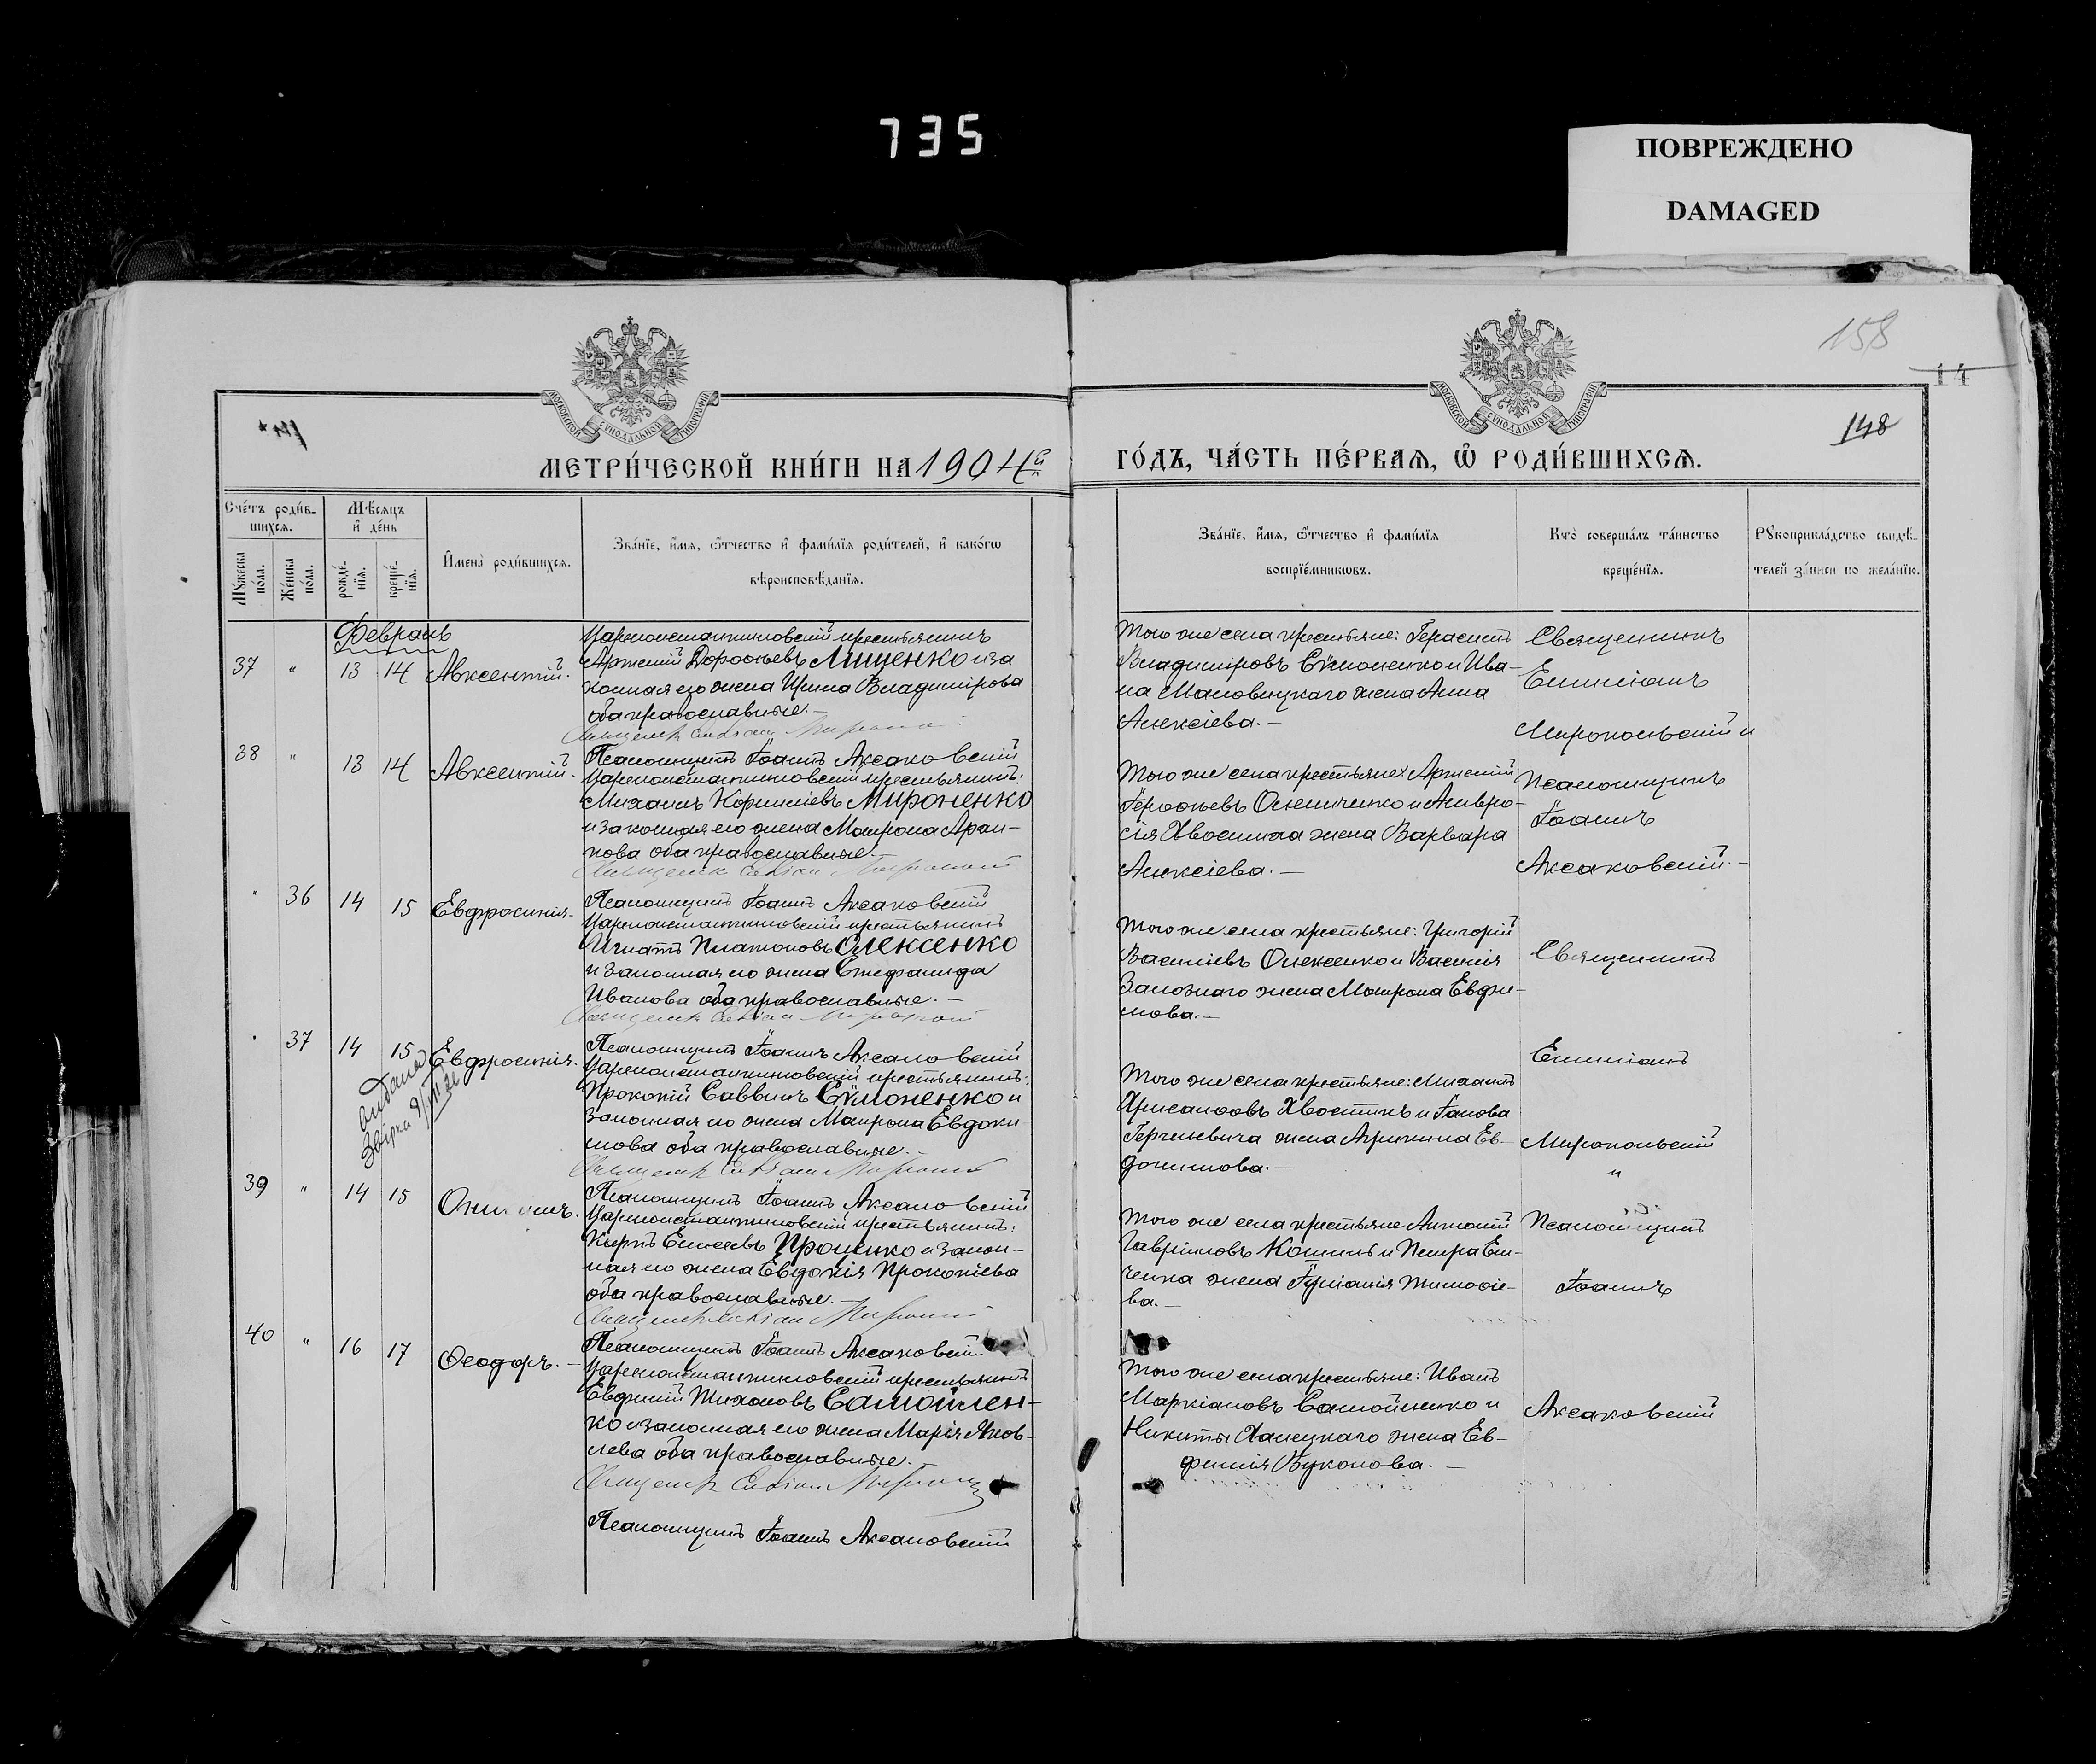 735
ПОВРЕЖДЕНО
DAMAGED
158
14
148
МОСКОВСКОЙ СѴНОДАЛЬНОЙ ТИПОГРАФІИ
МОСКОВСКОЙ СѴНОДАЛЬНОЙ ТИПОГРАФІИ
МЕТРИ́ЧЕСКОЙ КНИ́ГИ НА 1904й
ГО́ДЪ, ЧА́СТЬ ПЕ́РВАѦ, Ѡ҆ РОДИ́ВШИХСѦ.
Сче́тъ роди́в-
шихсѧ.
Мѣ́сѧцъ
и҆ де́нь
Мꙋ́жеска
по́ла.
Же́нска
по́ла.
рожде́-
нїѧ.
креще́-
нїѧ.
И҆мена̀ роди́вшихсѧ.
Зва́нїе, и҆́мѧ, ѻ҆́тчество и҆ фами́лїѧ роди́телей, и҆ како́гѡ
вѣроисповѣ́данїѧ.
Зва́нїе, и҆́мѧ, ѻ҆́тчество и҆ фами́лїѧ
воспрїе́мникѡвъ.
Кто̀ соверша́лъ та́инство
креще́нїѧ.
Рꙋкоприкла́дство свидѣ́-
телей за́писи по жела́нїю.
Февраль
37 " 13 14 Авксентій.
Цареконстантиновскій крестьянинъ
Арсеній Дороѳеевъ Лищенко и за
конная его жена Ирина Владимірова
оба православные.—
Того же села крестьяне: Герасимъ
Владиміровъ Симоненко и Ива-
на Маловицкаго жена Анна
Алексіева.—
Священникъ
Емиліанъ
Миропольскій и
38 " 13 14 Авксентій.
Псаломщикъ Іоаннъ Аксаковскій
Цареконстантиновскій крестьянинъ:
Михаилъ Корниліевъ Мироненко
и законная его жена Матрона Архи-
пова оба православные.—
Того же села крестьяне: Арсеній
Олениченко и Амвро-
сія Хвостика жена Варвара
Алексіева.—
Псаломщикъ
Іоаннъ
Аксаковскій.—
" 36 14 15 Евфросинія.
Псаломщикъ Іоаннъ Аксаковскій
Цареконстантиновскій крестьянинъ
Игнатъ Платоновъ Олексенко
и законная его жена Стефанида
Иванова оба православные.—
Того же села крестьяне: Григорій
Василіевъ Олексенко и Василія
Заложнаго жена Матрона Евфи-
мова.—
Священникъ
" 37 14 15 Евфросинія.
Псаломщикъ Іоаннъ Аксаковскій
Цареконстантиновскій крестьянинъ:
Прокопій Саввинъ Симоненко и
законная его жена Матрона Евдоки-
мова оба православные.—
Того же села крестьяне: Михаилъ
Хрисанфовъ Хвостикъ и Іакова
жена Агрипина Ев-
докимова.—
Емиліанъ
Миропольскій
и
39 " 14 15
Псаломщикъ Іоаннъ Аксаковскій
Цареконстантиновскій крестьянинъ:
Кирилъ Елисеевъ Проценко и закон-
ная его жена Евдокія Прокопіева
оба православные.—
Того же села крестьяне Антоній
Гавріиловъ Кошикъ и Петра
жена Іуліанія Тимоѳіе-
ва.—
Псаломщикъ
Іоаннъ
40 " 16 17 Ѳеодоръ.—
Псаломщикъ Іоаннъ Аксаковскій
Цареконстантиновскій крестьянинъ
Евфимій Тихоновъ Самойлен-
ко и законная его жена Марія Яков-
лева оба православные.—
Того же села крестьяне: Иванъ
Маркіановъ Самойленко и
Никиты Ханецкаго жена Ев-
фимія
Аксаковскій
Псаломщикъ Іоаннъ Аксаковскій